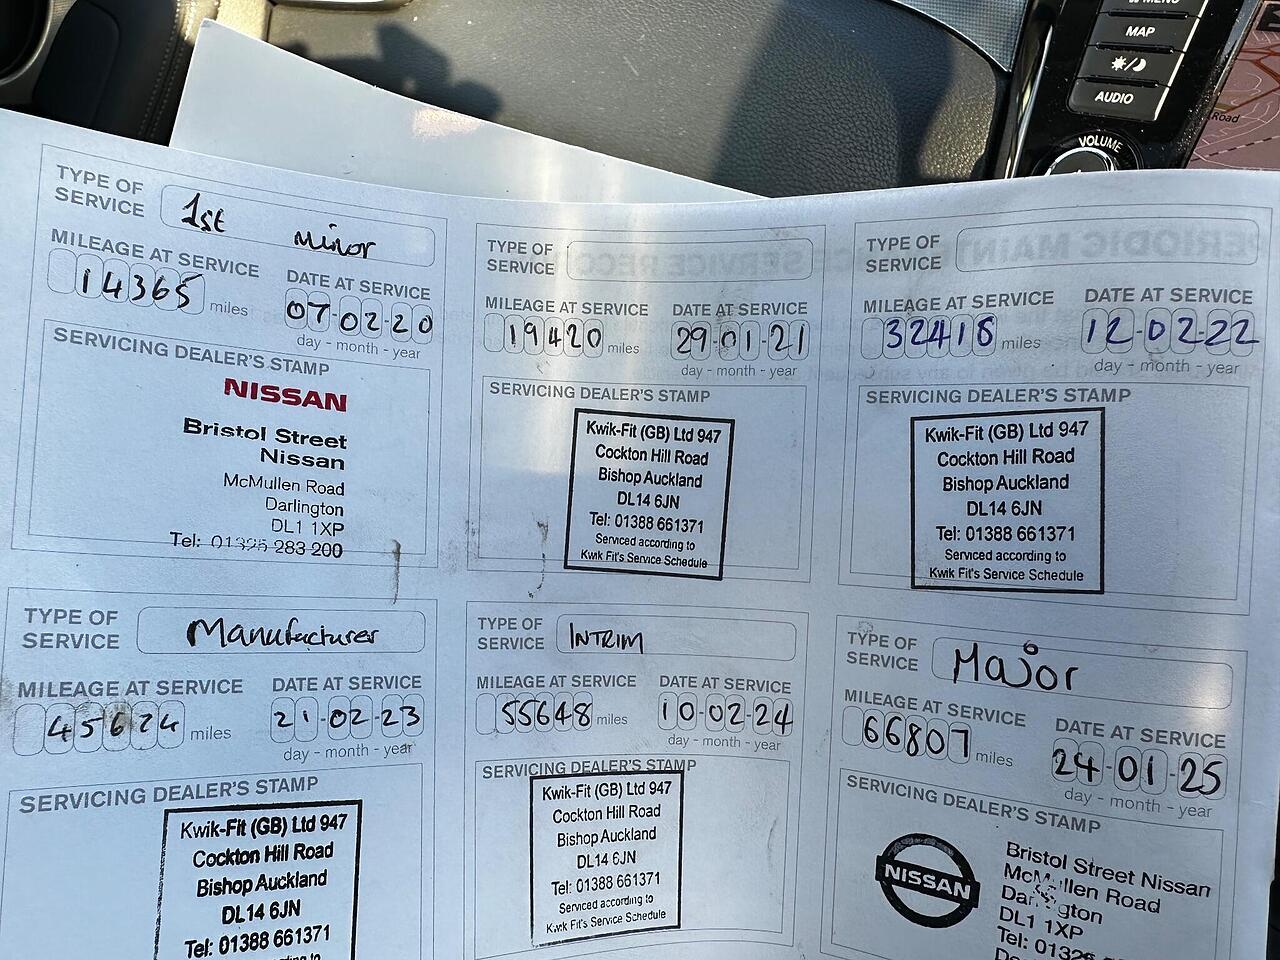 MENU
MAP
AUDIO
VOLUME
Road
TYPE OF SERVICE 1st minor
MILEAGE AT SERVICE DATE AT SERVICE
14365 miles 07-02-20
day - month - year
SERVICING DEALER'S STAMP
NISSAN
Bristol Street
Nissan
McMullen Road
Darlington
DL1 1XP
Tel: 01325 283 200
TYPE OF SERVICE
MILEAGE AT SERVICE DATE AT SERVICE
19420 miles 29-01-21
day - month - year
SERVICING DEALER'S STAMP
Kwik-Fit (GB) Ltd 947
Cockton Hill Road
Bishop Auckland
DL14 6JN
Tel: 01388 661371
Serviced according to
Kwik Fit's Service Schedule
TYPE OF SERVICE
MILEAGE AT SERVICE DATE AT SERVICE
32418 miles 12-02-22
day - month - year
SERVICING DEALER'S STAMP
Kwik-Fit (GB) Ltd 947
Cockton Hill Road
Bishop Auckland
DL14 6JN
Tel: 01388 661371
Serviced according to
Kwik Fit's Service Schedule
TYPE OF SERVICE Manufacturer
MILEAGE AT SERVICE DATE AT SERVICE
45624 miles 21-02-23
day - month - year
SERVICING DEALER'S STAMP
Kwik-Fit (GB) Ltd 947
Cockton Hill Road
Bishop Auckland
DL14 6JN
Tel: 01388 661371
TYPE OF SERVICE INTRIM
MILEAGE AT SERVICE DATE AT SERVICE
55648 miles 10-02-24
day - month - year
SERVICING DEALER'S STAMP
Kwik-Fit (GB) Ltd 947
Cockton Hill Road
Bishop Auckland
DL14 6JN
Tel: 01388 661371
Serviced according to
Kwik Fit's Service Schedule
TYPE OF SERVICE Major
MILEAGE AT SERVICE DATE AT SERVICE
66807 miles 24-01-25
day - month - year
SERVICING DEALER'S STAMP
NISSAN
Bristol Street Nissan
McMullen Road
Darlington
DL1 1XP
Tel: